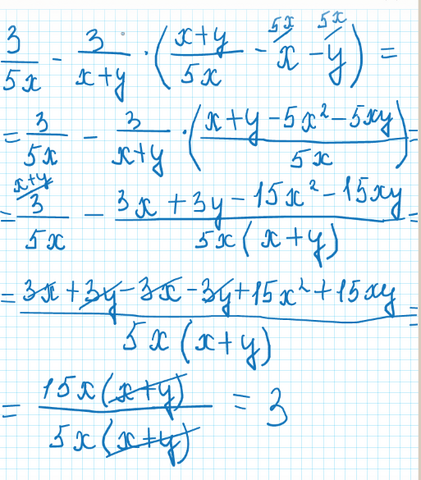 3/(5x) - 3/(x+y) · ((x+y)/(5x) - x^(5x/ - y^(5x/) =
= 3/(5x) - 3/(x+y) · ((x+y-5x²-5xy)/(5x)) =
= 3^(x+y/)/(5x) - (3x+3y-15x²-15xy)/(5x(x+y)) =
= (3x+3y-3x-3y+15x²+15xy)/(5x(x+y)) =
= (15x(x+y))/(5x(x+y)) = 3